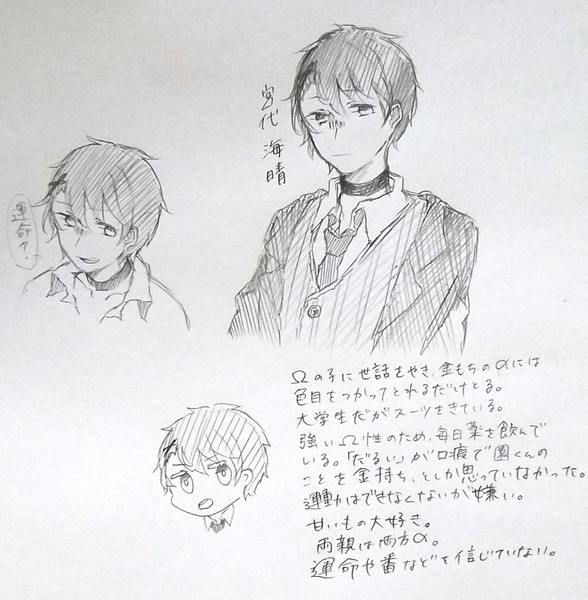 宮代 海晴
運命て!
Ωの子に世話をやき、金もちのαには
色目をつかってとれるだけとる。
大学生だがスーツをきている。
強いΩ性のため、毎日薬を飲んで
いる。「だるい」が口癖で園くんの
ことを金持ち、としか思っていなかった。
運動はできなくないが嫌い。
甘いもの大好き。
両親は両方α。
運命や番などを信じていない。